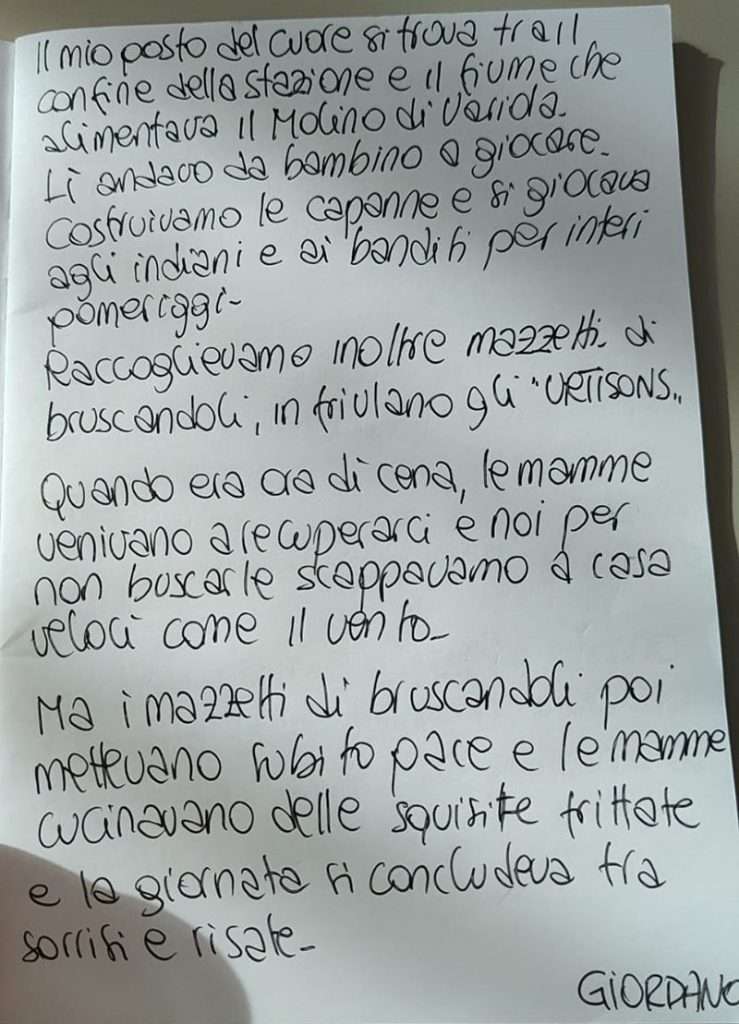 Il mio posto del cuore si trova tra il
confine della stazione e il fiume che
alimentava il Molino di Variola.
Lì andavo da bambino a giocare.
Costruivamo le capanne e si giocava
agli indiani e ai banditi per interi
pomeriggi-
Raccoglievamo inoltre mazzetti di
bruscandoli, in friulano gli "URTISONS"
Quando era ora di cena, le mamme
venivano a recuperarci e noi per
non buscarle scappavamo a casa
veloci come il vento-
Ma i mazzetti di bruscandoli poi
mettevano subito pace e le mamme
cucinavano delle squisite frittate
e la giornata si concludeva tra
sorrisi e risate-
GIORDANO